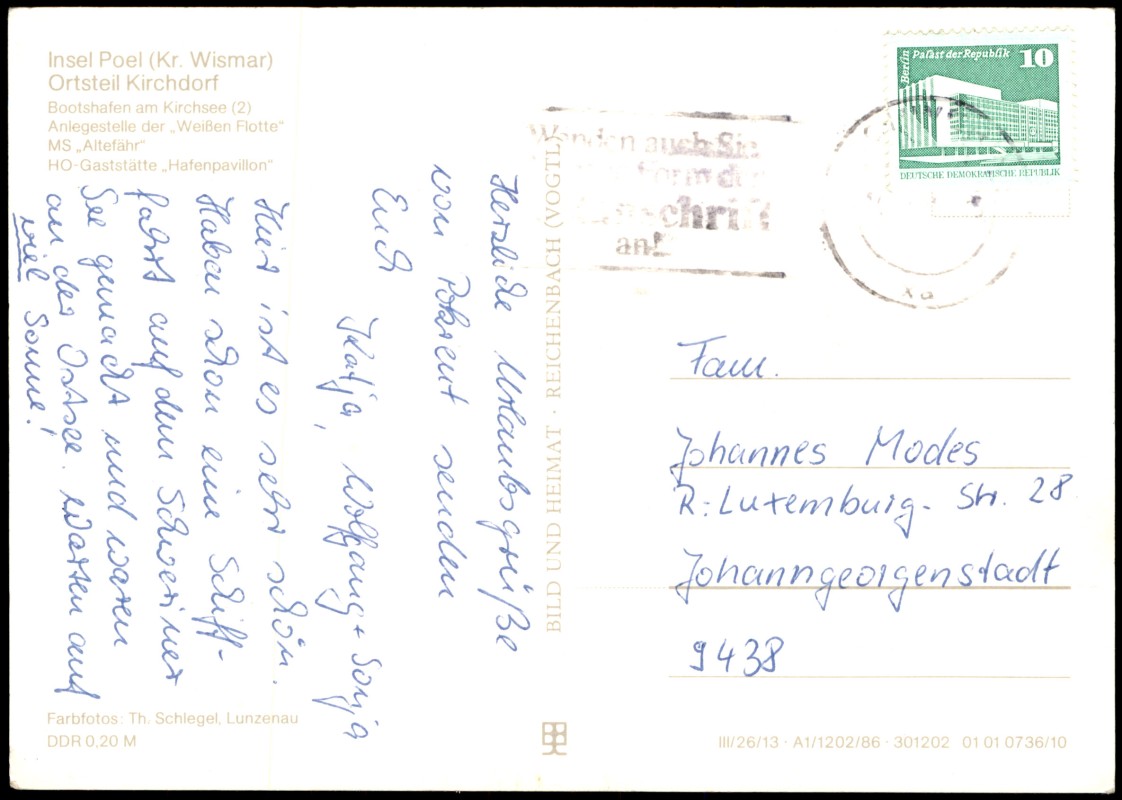 Insel Poel (Kr. Wismar)
Ortsteil Kirchdorf
Bootshafen am Kirchsee (2)
Anlegestelle der „Weißen Flotte"
MS „Altefähr"
HO-Gaststätte „Hafenpavillon"
Herzliche Urlaubsgrüße
von senden
Euch
Katja, Wolfgang + Sonja
Hier ist es sehr schön.
Haben schon eine Schiff-
fahrt auf dem Schweriner
See gemacht und waren
an der Ostsee. Warten auf
viel Sonne!
Farbfotos: Th. Schlegel, Lunzenau
DDR 0,20 M
BILD UND HEIMAT · REICHENBACH (VOGTL)
auch Sie
form der
schrift
an!"
Berlin
Palast der Republik
10
DEUTSCHE DEMOKRATISCHE REPUBLIK
Fam.
Johannes Modes
R.-Luxemburg-Str. 28
Johanngeorgenstadt
9438
III/26/13 · A1/1202/86 · 301202 01 01 0736/10